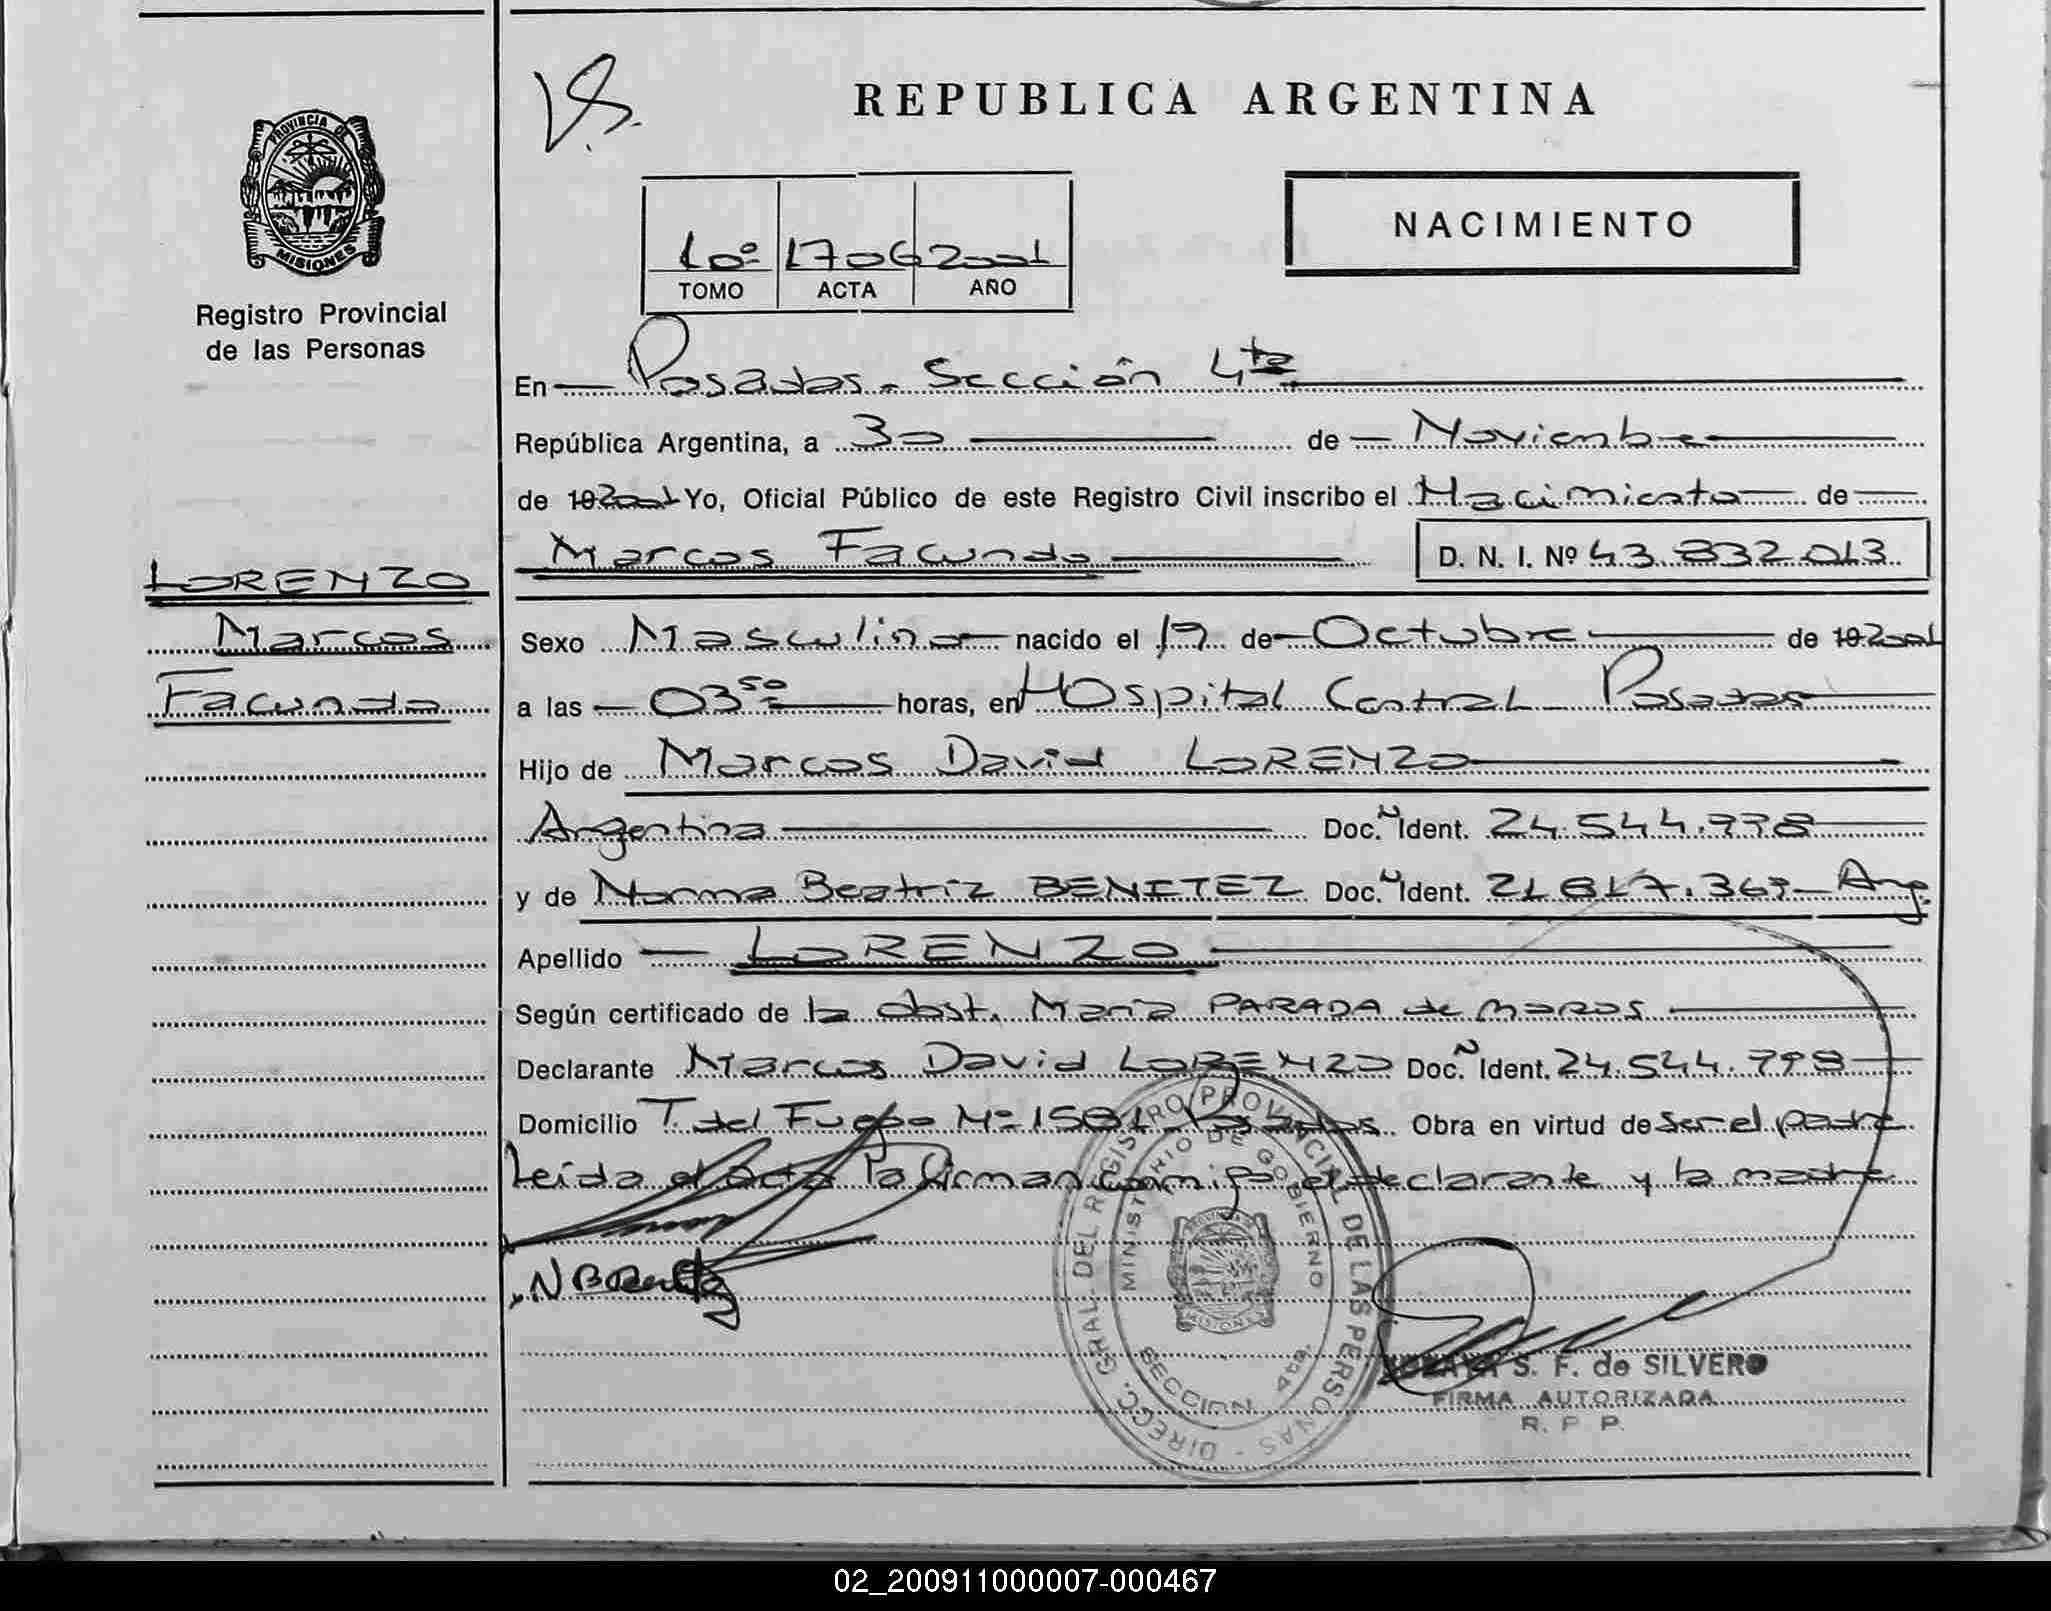 REPUBLICA ARGENTINA
PROVINCIA DE
MISIONES
Registro Provincial
de las Personas
10º 1706 2001
TOMO ACTA AÑO
NACIMIENTO
En Posadas - Sección 4ta
República Argentina, a 30 de Noviembre
de 19 2001 Yo, Oficial Público de este Registro Civil inscribo el Nacimiento de
Marcos Facundo D. N. I. Nº 43.832.013
LORENZO
Marcos
Facundo
Sexo Masculino nacido el 19 de Octubre de 19 2001
a las 03 50 horas, en Hospital Central Posadas
Hijo de Marcos David LORENZO
Argentina Doc. N Ident. 24.544.798
y de Norma Beatriz BENITEZ Doc. N Ident. 21.817.369 - Arg.
Apellido LORENZO
Según certificado de la obst. María PARADA de
Declarante Marcos David LORENZO Doc. N Ident. 24.544.798
Domicilio T. del Fuego Nº 1581 - Posadas Obra en virtud de ser el padre
Leída el acta la firman conmigo el declarante y la madre
DIRECC. GRAL. DEL REGISTRO PROVINCIAL DE LAS PERSONAS
MINISTERIO DE GOBIERNO
SECCION 4ta.
S. F. de SILVERO
FIRMA AUTORIZADA
R. P. P.
02_200911000007-000467